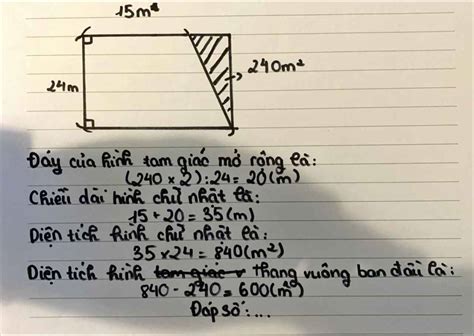 15m
240m²
24m
Đáy của hình tam giác mở rộng là:
(240 x 2) : 24 = 20(m)
Chiều dài hình chữ nhật là:
15 + 20 = 35 (m)
Diện tích hình chữ nhật là:
35 x 24 = 840(m²)
Diện tích hình tam giác v thang vuông ban đầu là:
840 - 240 = 600(m²)
Đáp số:...